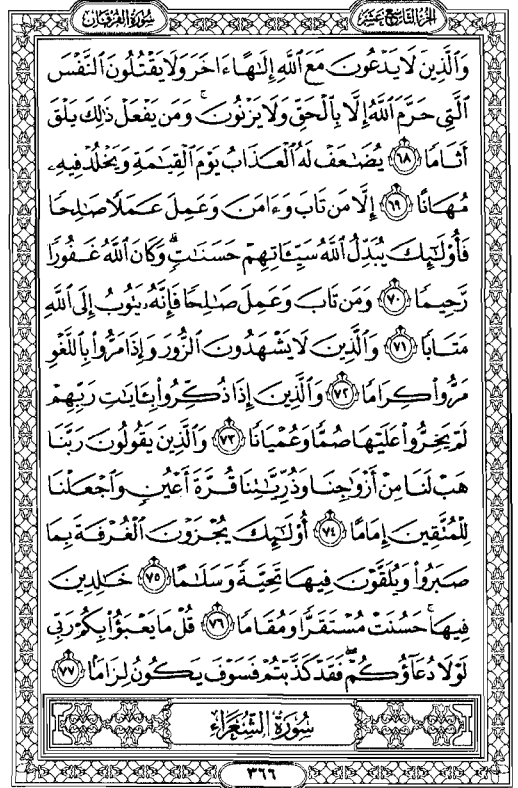 سُورَةُ الفُرْقَان
الجُزْءُ التَّاسِعَ عَشَرَ
وَٱلَّذِينَ لَا يَدْعُونَ مَعَ ٱللَّهِ إِلَٰهًا ءَاخَرَ وَلَا يَقْتُلُونَ ٱلنَّفْسَ
ٱلَّتِى حَرَّمَ ٱللَّهُ إِلَّا بِٱلْحَقِّ وَلَا يَزْنُونَ ۚ وَمَن يَفْعَلْ ذَٰلِكَ يَلْقَ
أَثَامًا ﴿٦٨﴾ يُضَٰعَفْ لَهُ ٱلْعَذَابُ يَوْمَ ٱلْقِيَٰمَةِ وَيَخْلُدْ فِيهِۦ
مُهَانًا ﴿٦٩﴾ إِلَّا مَن تَابَ وَءَامَنَ وَعَمِلَ عَمَلًا صَٰلِحًا
فَأُو۟لَٰٓئِكَ يُبَدِّلُ ٱللَّهُ سَيِّـَٔاتِهِمْ حَسَنَٰتٍ ۗ وَكَانَ ٱللَّهُ غَفُورًا
رَّحِيمًا ﴿٧٠﴾ وَمَن تَابَ وَعَمِلَ صَٰلِحًا فَإِنَّهُۥ يَتُوبُ إِلَى ٱللَّهِ
مَتَابًا ﴿٧١﴾ وَٱلَّذِينَ لَا يَشْهَدُونَ ٱلزُّورَ وَإِذَا مَرُّوا۟ بِٱللَّغْوِ
مَرُّوا۟ كِرَامًا ﴿٧٢﴾ وَٱلَّذِينَ إِذَا ذُكِّرُوا۟ بِـَٔايَٰتِ رَبِّهِمْ
لَمْ يَخِرُّوا۟ عَلَيْهَا صُمًّا وَعُمْيَانًا ﴿٧٣﴾ وَٱلَّذِينَ يَقُولُونَ رَبَّنَا
هَبْ لَنَا مِنْ أَزْوَٰجِنَا وَذُرِّيَّٰتِنَا قُرَّةَ أَعْيُنٍ وَٱجْعَلْنَا
لِلْمُتَّقِينَ إِمَامًا ﴿٧٤﴾ أُو۟لَٰٓئِكَ يُجْزَوْنَ ٱلْغُرْفَةَ بِمَا
صَبَرُوا۟ وَيُلَقَّوْنَ فِيهَا تَحِيَّةً وَسَلَٰمًا ﴿٧٥﴾ خَٰلِدِينَ
فِيهَا ۚ حَسُنَتْ مُسْتَقَرًّا وَمُقَامًا ﴿٧٦﴾ قُلْ مَا يَعْبَؤُا۟ بِكُمْ رَبِّى
لَوْلَا دُعَآؤُكُمْ ۖ فَقَدْ كَذَّبْتُمْ فَسَوْفَ يَكُونُ لِزَامًۢا ﴿٧٧﴾
سُورَةُ الشُّعَرَاءِ
٣٦٦